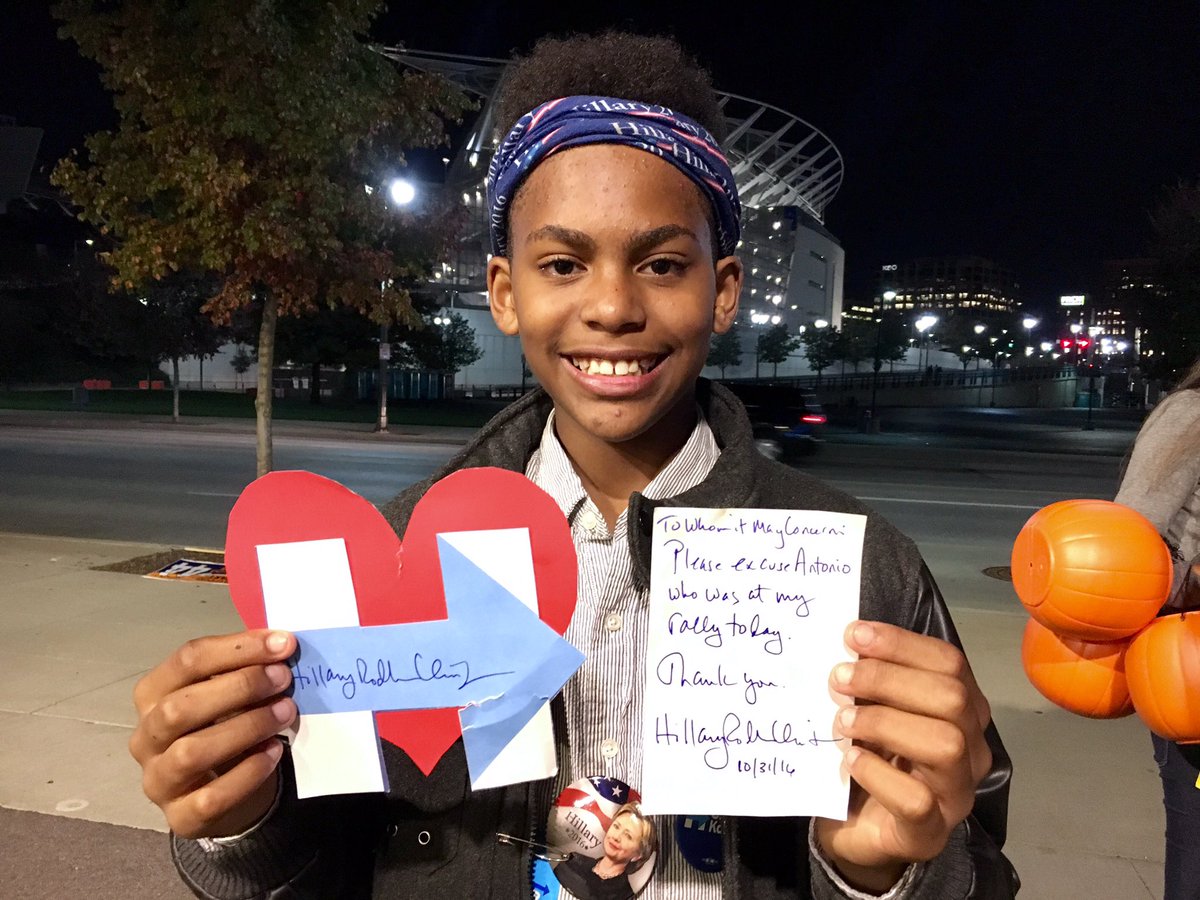 Hillary 2
Hill
Hillary Rodham Clinton
To Whom it May Concern:
Please excuse Antonio
who was at my
rally today.
Thank you.
Hillary Rodham Clinton
10/31/16
Hillary
2016
H